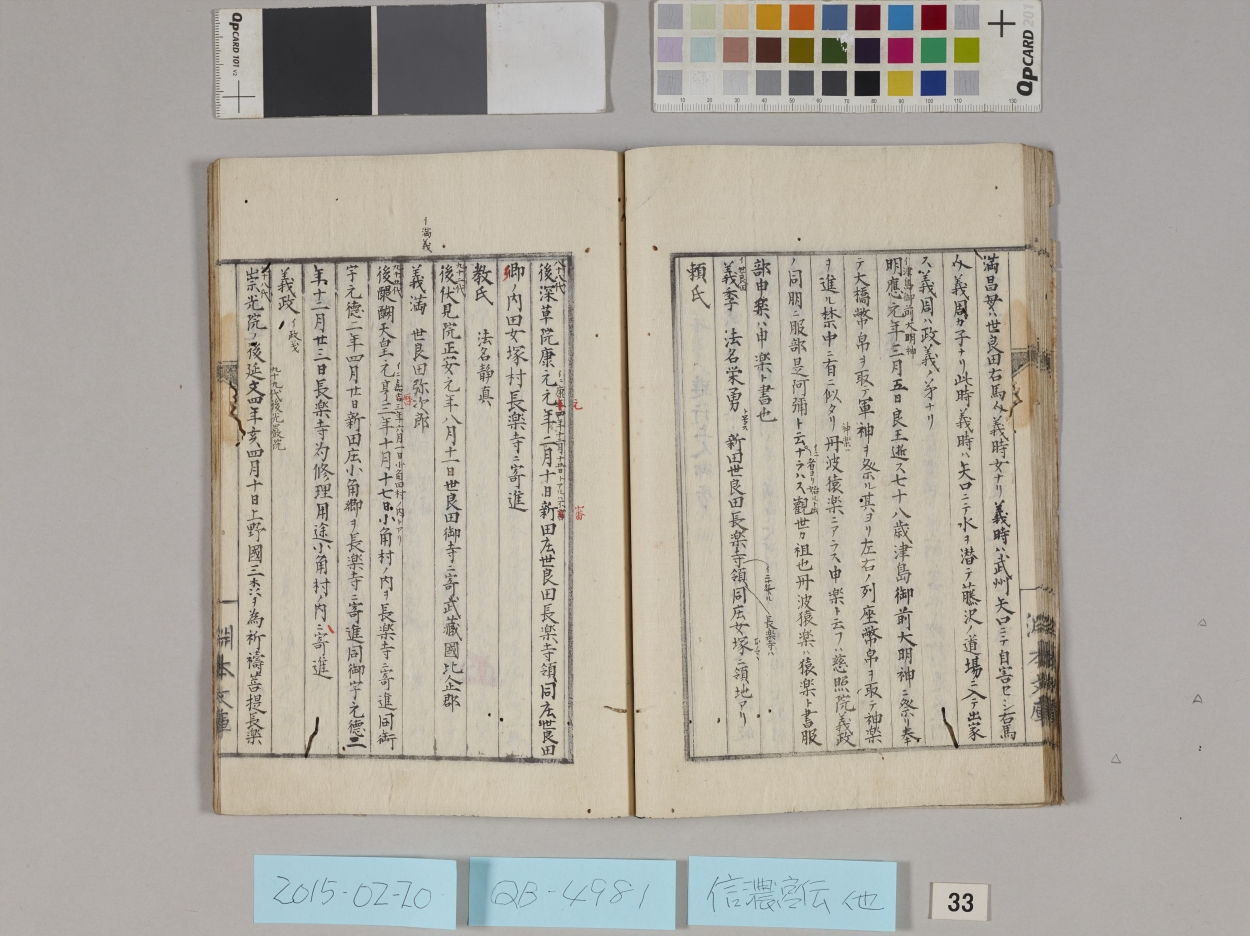 QPCARD 101 v2
QPCARD 201
満昌母ハ世良田右馬ノ義時女ナリ 義時ハ武州矢口ニテ自害セシ右馬
義周カ子ナリ此時義時ハ矢口ニテ水ヲ潜テ藤沢ノ道場ニ入テ出家
ス義周ハ政義ノ弟ナリ
津島御前大明神
明應元年三月五日良王逝ス七十八歳津島御前大明神ニ祭リ奉
テ大橋幣帛ヲ取テ軍神ヲ祭ル其ヨリ左右ノ列座幣帛ヲ取テ神楽
ヲ進ル禁中ニ有ニ似タリ丹波猿楽ニアラス申楽ト云フハ慈照院義政
ノ同朋ニ服部是阿彌ト云ナラハス觀世カ祖也丹波猿楽ハ猿楽ト書服
部申楽ハ申楽ト書也
世良田
義季 法名栄勇 新田世良田長楽寺領同庄女塚ニ領地アリ
長楽寺ハ
頼氏
八十八代
後深草院康元元年二月十日新田庄世良田長楽寺領同庄世良田
郷ノ内田女塚村長楽寺ニ寄進
教氏 法名静真
九十二代
後伏見院正安元年八月十二日世良田御寺ニ寄武藏國比企郡
イ満義
義満 世良田弥次郎
九十五代
後醍醐天皇元亨三年十月十七日小角村ノ内ヲ長楽寺ニ寄進同御
字元徳二年四月廿日新田庄小角郷ヲ長楽寺ニ寄進同御字元徳二
年十二月廿三日長楽寺為修理用途小角村ノ内ニ寄進
義政 イ政義
九十八代
九十九代後光嚴院
崇光院ノ後延文四年亥四月十日上野國三木ヲ為祈禱菩提長楽
2015-02-20
QB-4981
信濃宮伝 他
33